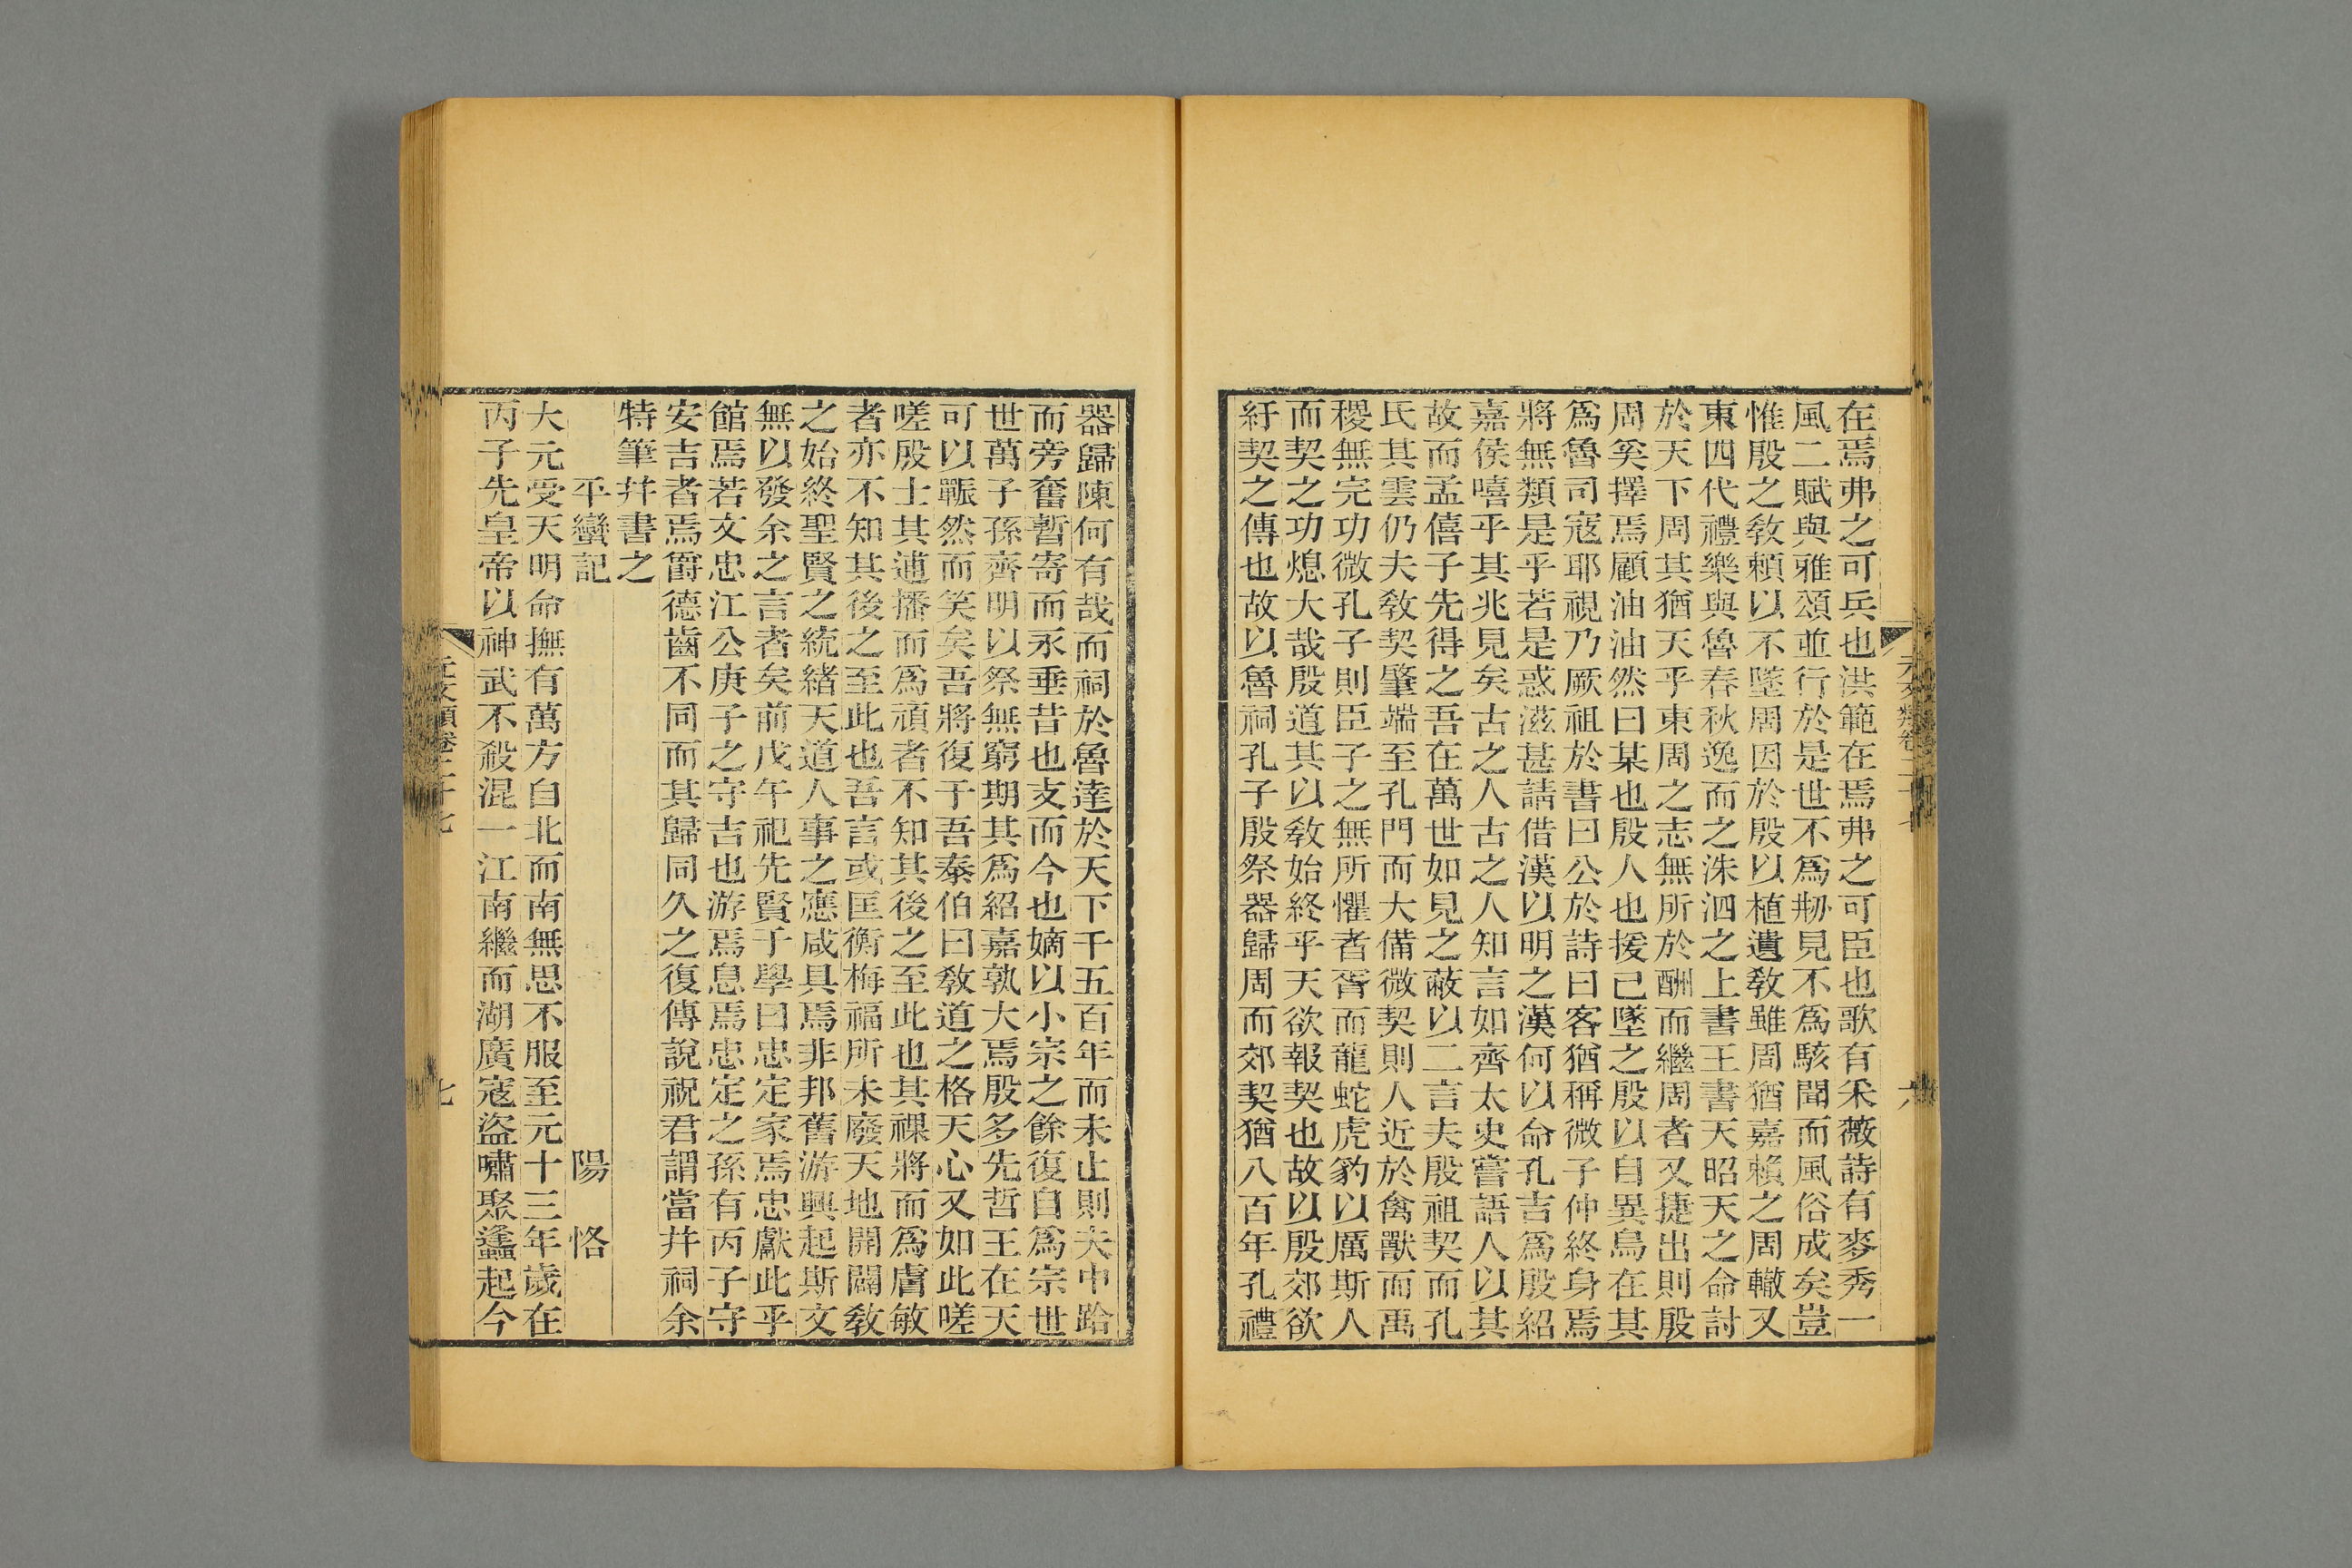 在焉弗之可兵也洪範在焉弗之可臣也歌有采薇詩有麥秀一
風二賦與雅頌並行於是世不爲剙見不爲駭聞而風俗成矣豈
惟殷之敎賴以不墜周因於殷以植遺敎雖周猶嘉賴之周轍又
東四代禮樂與魯春秋逸而之洙泗之上書王書天昭天之命討
於天下周其猶天乎東周之志無所於酬而繼周者又捷出則殷
周奚擇焉顧油油然曰某也殷人也援已墜之殷以自異烏在其
爲魯司寇耶視乃厥祖於書曰公於詩曰客猶稱微子仲終身焉
將無類是乎若是惑滋甚請借漢以明之漢何以命孔吉爲殷紹
嘉侯嘻乎其兆見矣古之人古之人知言如齊太史嘗語人以其
故而孟僖子先得之吾在萬世如見之蔽以二言夫殷祖契而孔
民其雲仍夫敎契肇端至孔門而大備微契則人近於禽獸而禹
稷無完功微孔子則臣子之無所懼者胥而龍蛇虎豹以厲斯人
而契之功熄大哉殷道其以敎始終乎天欲報契也故以殷郊欲
紆契之傳也故以魯祠孔子殷祭器歸周而郊契猶八百年孔禮
元文類卷二十七
六
器歸陳何有哉而祠於魯達於天下千五百年而未止則夫中踣
而旁奮暫寄而永垂昔也支而今也嫡以小宗之餘復自爲宗世
世萬子孫齊明以祭無窮期其爲紹嘉孰大焉殷多先哲王在天
可以囅然而笑矣吾將復于吾泰伯曰敎道之格天心又如此嗟
嗟殷士其逋播而爲頑者不知其後之至此也其祼將而爲膚敏
者亦不知其後之至此也吾言或匡衡梅福所未廢天地開闢敎
之始終聖賢之統緖天道人事之應咸具焉非邦舊游興起斯文
無以發余之言者矣前戊午祀先賢于學曰忠定家焉忠獻此乎
館焉若文忠江公庚子之守吉也游焉息焉忠定之孫有丙子守
安吉者焉爵德齒不同而其歸同久之復傳說祝君謂當幷祠余
特筆幷書之
平蠻記　陽恪
大元受天明命撫有萬方自北而南無思不服至元十三年歲在
丙子先皇帝以神武不殺混一江南繼而湖廣寇盜嘯聚蠭起今
元文類卷二十七
七